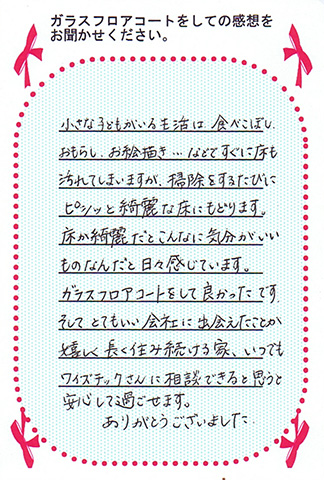 ガラスフロアコートをしての感想を
お聞かせください。
小さな子どもがいる生活は、食べこぼし、
おもらし、お絵描き…などですぐに床も
汚れてしまいますが、掃除をするたびに
ピシッと綺麗な床にもどります。
床が綺麗だとこんなに気分がいい
ものなんだと日々感じています。
ガラスフロアコートをして良かったです。
そして とてもいい会社に出会えたことが
嬉しく 長く住み続ける家、いつでも
ワイズテックさんに相談できると思うと
安心して過ごせます。
ありがとうございました。